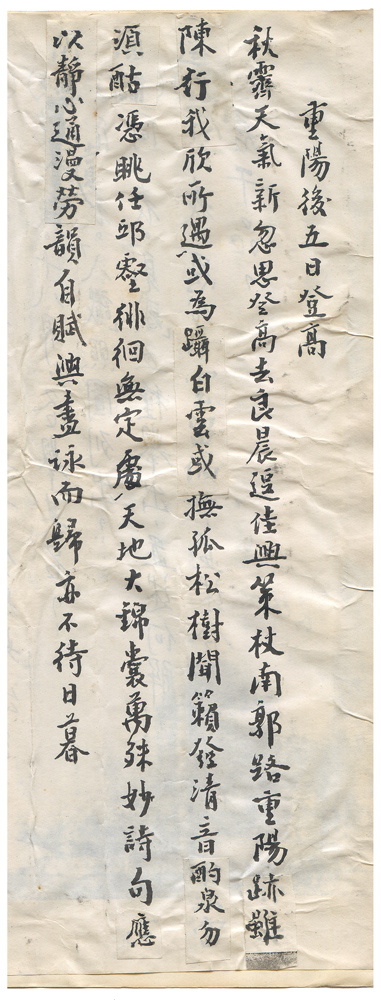 重陽後五日登高
秋霽天氣新忽思登高去良晨逗佳興策杖南郭路重陽跡雖
陳行我欣所遇或為躡白雲或撫孤松樹聞籟發清音酌泉勿
須酤憑眺任邱壑徘徊無定處天地大錦囊萬殊妙詩句應
以靜心通漫勞韻自賦興盡詠而歸亦不待日暮